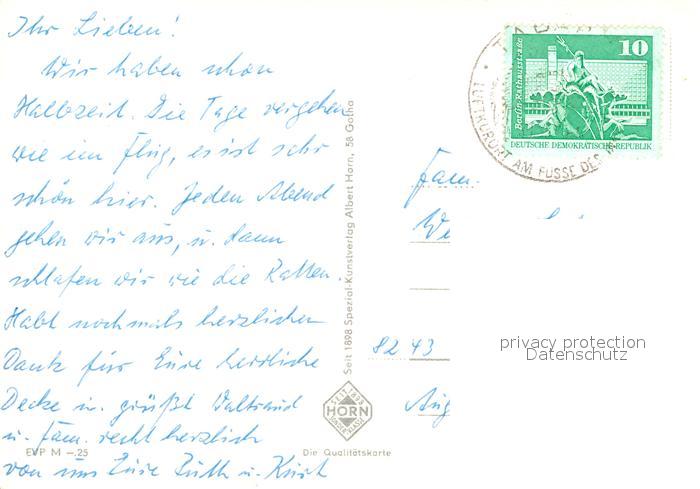 Ihr Lieben!
Wir haben schon
Halbzeit. Die Tage vergehen
wie im Flug, es ist sehr
schön hier. Jeden Abend
gehen wir aus, u. dann
schlafen wir wie die Ratten.
Habt nochmals herzlichen
Dank für Eure herrliche
Decke u. grüßt Waltraud
u. Fam. recht herzlich
von uns Eure Ruth u. Kurt
EVP M -.25
Seit 1898 Spezial-Kunstverlag Albert Horn, 58 Gotha
SEIT 1898
HORN
SONDERKLASSE
Die Qualitätskarte
10
Berlin-Rathausstraße
DEUTSCHE DEMOKRATISCHE REPUBLIK
LUFTKURORT AM FUSSE DES
Fam.
We
82 43
Aug
privacy protection
Datenschutz